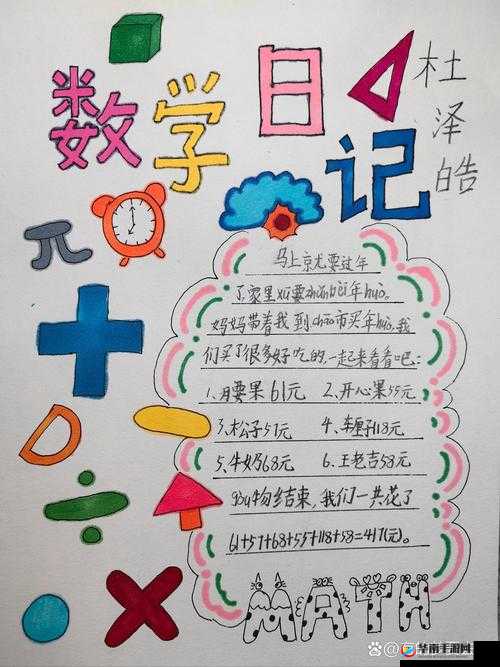 数学日记
杜泽皓
π
马上就要过年
了,家里xū要zhǔnbèi年huò。
妈妈带着我到chāo市买年huò,我
们买了很多好吃的,一起来看看吧:
1、腰果61元 2、开心果55元
3、松子57元 4、车厘子118元
5、牛奶68元 6、王老吉58元
gòu物结束,我们一共花了
61+57+68+55+118+58=417(元)。
MATH
华南手游网